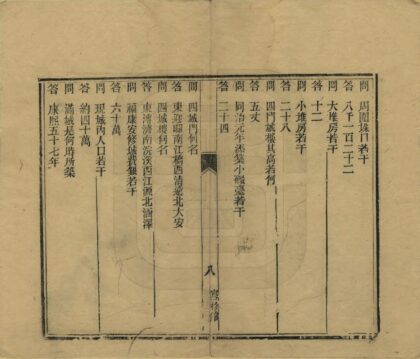 問 周圍垛口若干
答 八千一百二十二
問 大堆房若干
答 十二
問 小堆房若干
答 二十八
問 四門城樓其高若何
答 五丈
問 同治元年添築小礮臺若干
答 二十四
八
問 四城門何名
答 東迎暉南江橋西清遠北大安
問 四城樓何名
答 東溥濟南浣溪西江源北涵澤
問 福康安修城費銀若干
答 六十萬
問 現城內人口若干
答 約四十萬
問 滿城是何時所築
答 康熙五十七年